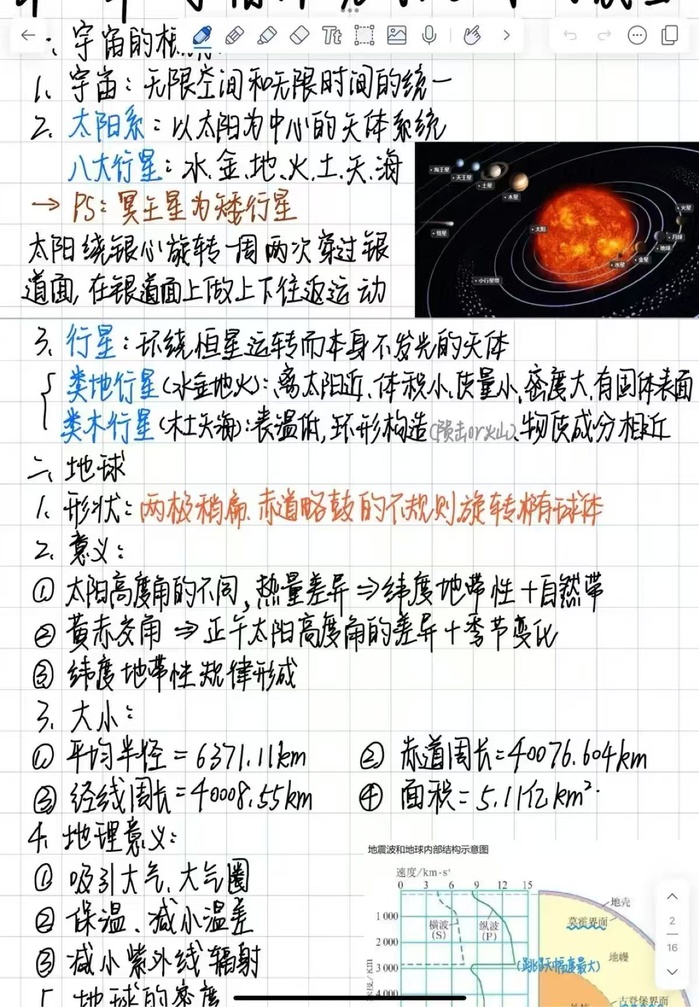 一、宇宙的
1、宇宙：无限空间和无限时间的统一
2、太阳系：以太阳为中心的天体系统
八大行星：水、金、地、火、土、天、海
→ PS：冥王星为矮行星
海王星
天王星
土星
木星
彗星
太阳
火星
月球
地球
金星
水星
小行星带
太阳绕银心旋转一周两次穿过银
道面，在银道面上做上下往返运动
3、行星：环绕恒星运转而本身不发光的天体
类地行星（水金地火）：离太阳近、体积小、质量小、密度大、有固体表面
类木行星（木土天海）：表温低、环形构造（陨击or火山）、物质成分相近
二、地球
1、形状：两极稍扁、赤道略鼓的不规则旋转椭球体
2、意义：
① 太阳高度角的不同，热量差异⇒纬度地带性＋自然带
② 黄赤交角⇒正午太阳高度角的差异＋季节变化
③ 纬度地带性规律形成
3、大小：
① 平均半径=6371.11km ② 赤道周长=40076.604km
③ 经线周长=40008.55km ④ 面积=5.11亿km²
4、地理意义：
① 吸引大气、大气圈
② 保温、减小温差
③ 减小紫外线辐射
地球的密度
地震波和地球内部结构示意图
速度/km·s⁻¹
0 3 6 9 12 15
地壳
1 000
莫霍界面
横波(S)
纵波(P)
2 000
地幔
3 000
(跳跃幅度最大)
4 000
古登堡界面
2
16